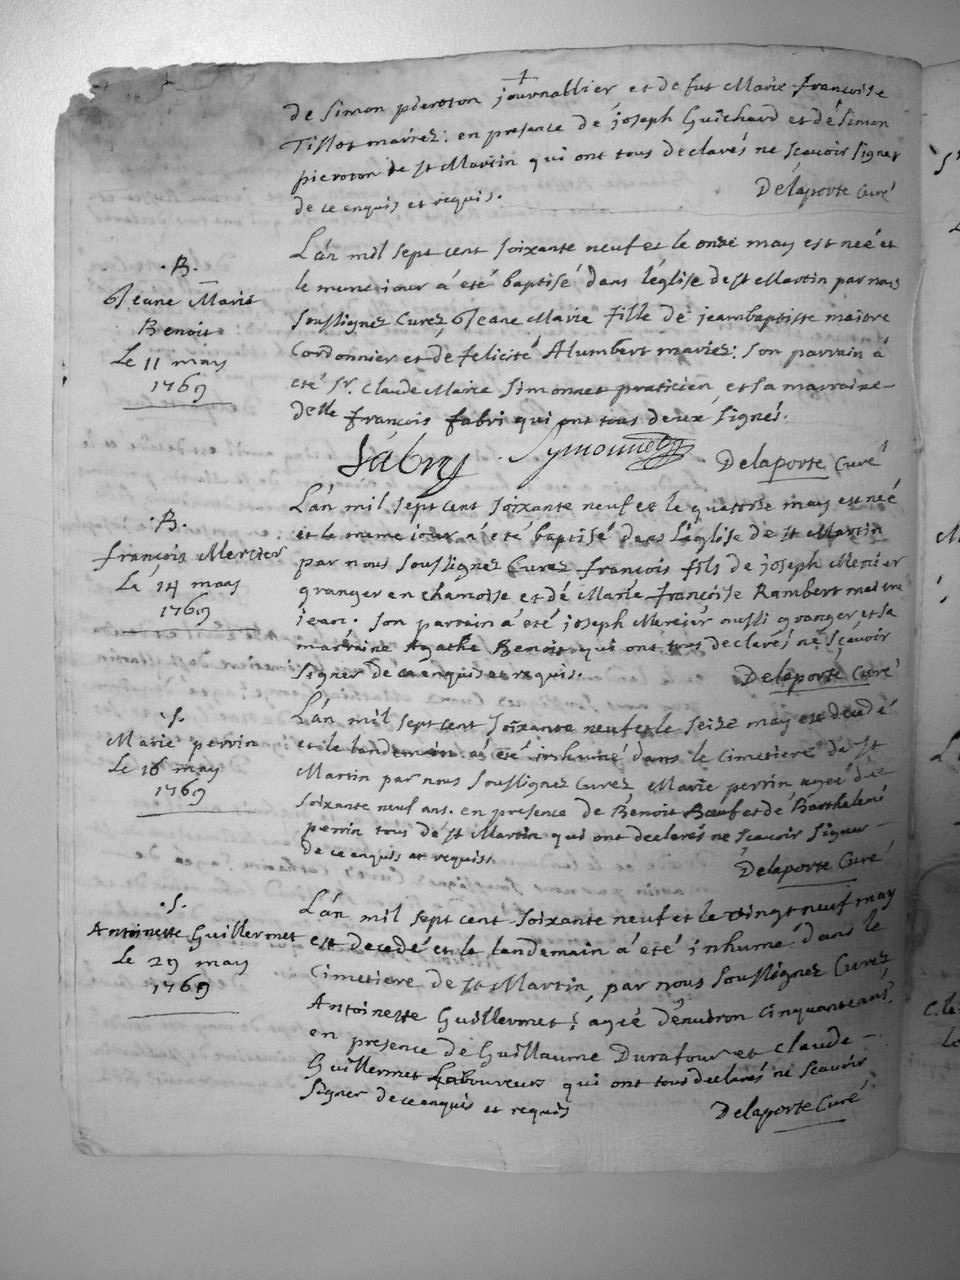 de Simon pieroton journallier et de fut Marie françoise
Tissot mariez: en presence de joseph Guichard et de Simon
pieroton de st Martin qui ont tous declarés ne scavoir signer
de ce enquis et requis.
Delaporte Curé
L'an mil sept cent soixante neuf et le onze may est neé et
le meme iour á été baptisé dans l'églize de st Martin par nous
soussignez Curez, Jeane Marie fille de jeambaptiste
Cordonnier et de felicité Alumbert mariez: son parrain á
eté Sr. Claude Marie Simonnet praticien et sa marraine
delle françois fabri qui ont tous deux signés.
.B.
Jeane Marie
Benoit
Le 11 may
1769
fabry Symonnet Delaporte Curé
L'an mil sept cent soixante neuf et le quatorse may est neé
et le meme iour á eté baptisé dans l'églize de st Martin
par nous soussignez Curez françois fils de joseph Mercier
granger en chamoise et de Marie françoise Rambert
son parrain á été joseph Mercier aussi granger et sa
marraine Agathe Benoit qui ont tous declarés ne scavoir
signer de ce enquis et requis.
Delaporte Curé
.B.
françois Mercier
Le 14 may
1769
L'an mil sept cent soixante neuf et le seize may est decedé
et le landemain á eté inhumé dans le cimetiere de st
Martin par nous soussignez Curez Marie perrin ageé de
soixante neuf ans. en presence de Benoit Bœuf et de Barthelemi
perrin tous de st Martin qui ont declarés ne scavoir signer
de ce enquis et requist
Delaporte Curé
.S.
Marie perrin
Le 16 may
1769
L'an mil sept cent soixante neuf et le vingt neuf may
est decedé et le landemain á été inhumé dans le
Cimetiere de st Martin, par nous soussignez Curez
Antoinette Guillermet, ageé denviron cinquante ans,
en presence de Guillaume Durafour et Claude
Guillermet Laboureurs qui ont tous declarés ne scavoir
signer de ce enquis et requis
Delaporte Curé
.S.
Antoinette Guillermet
Le 29 may
1769